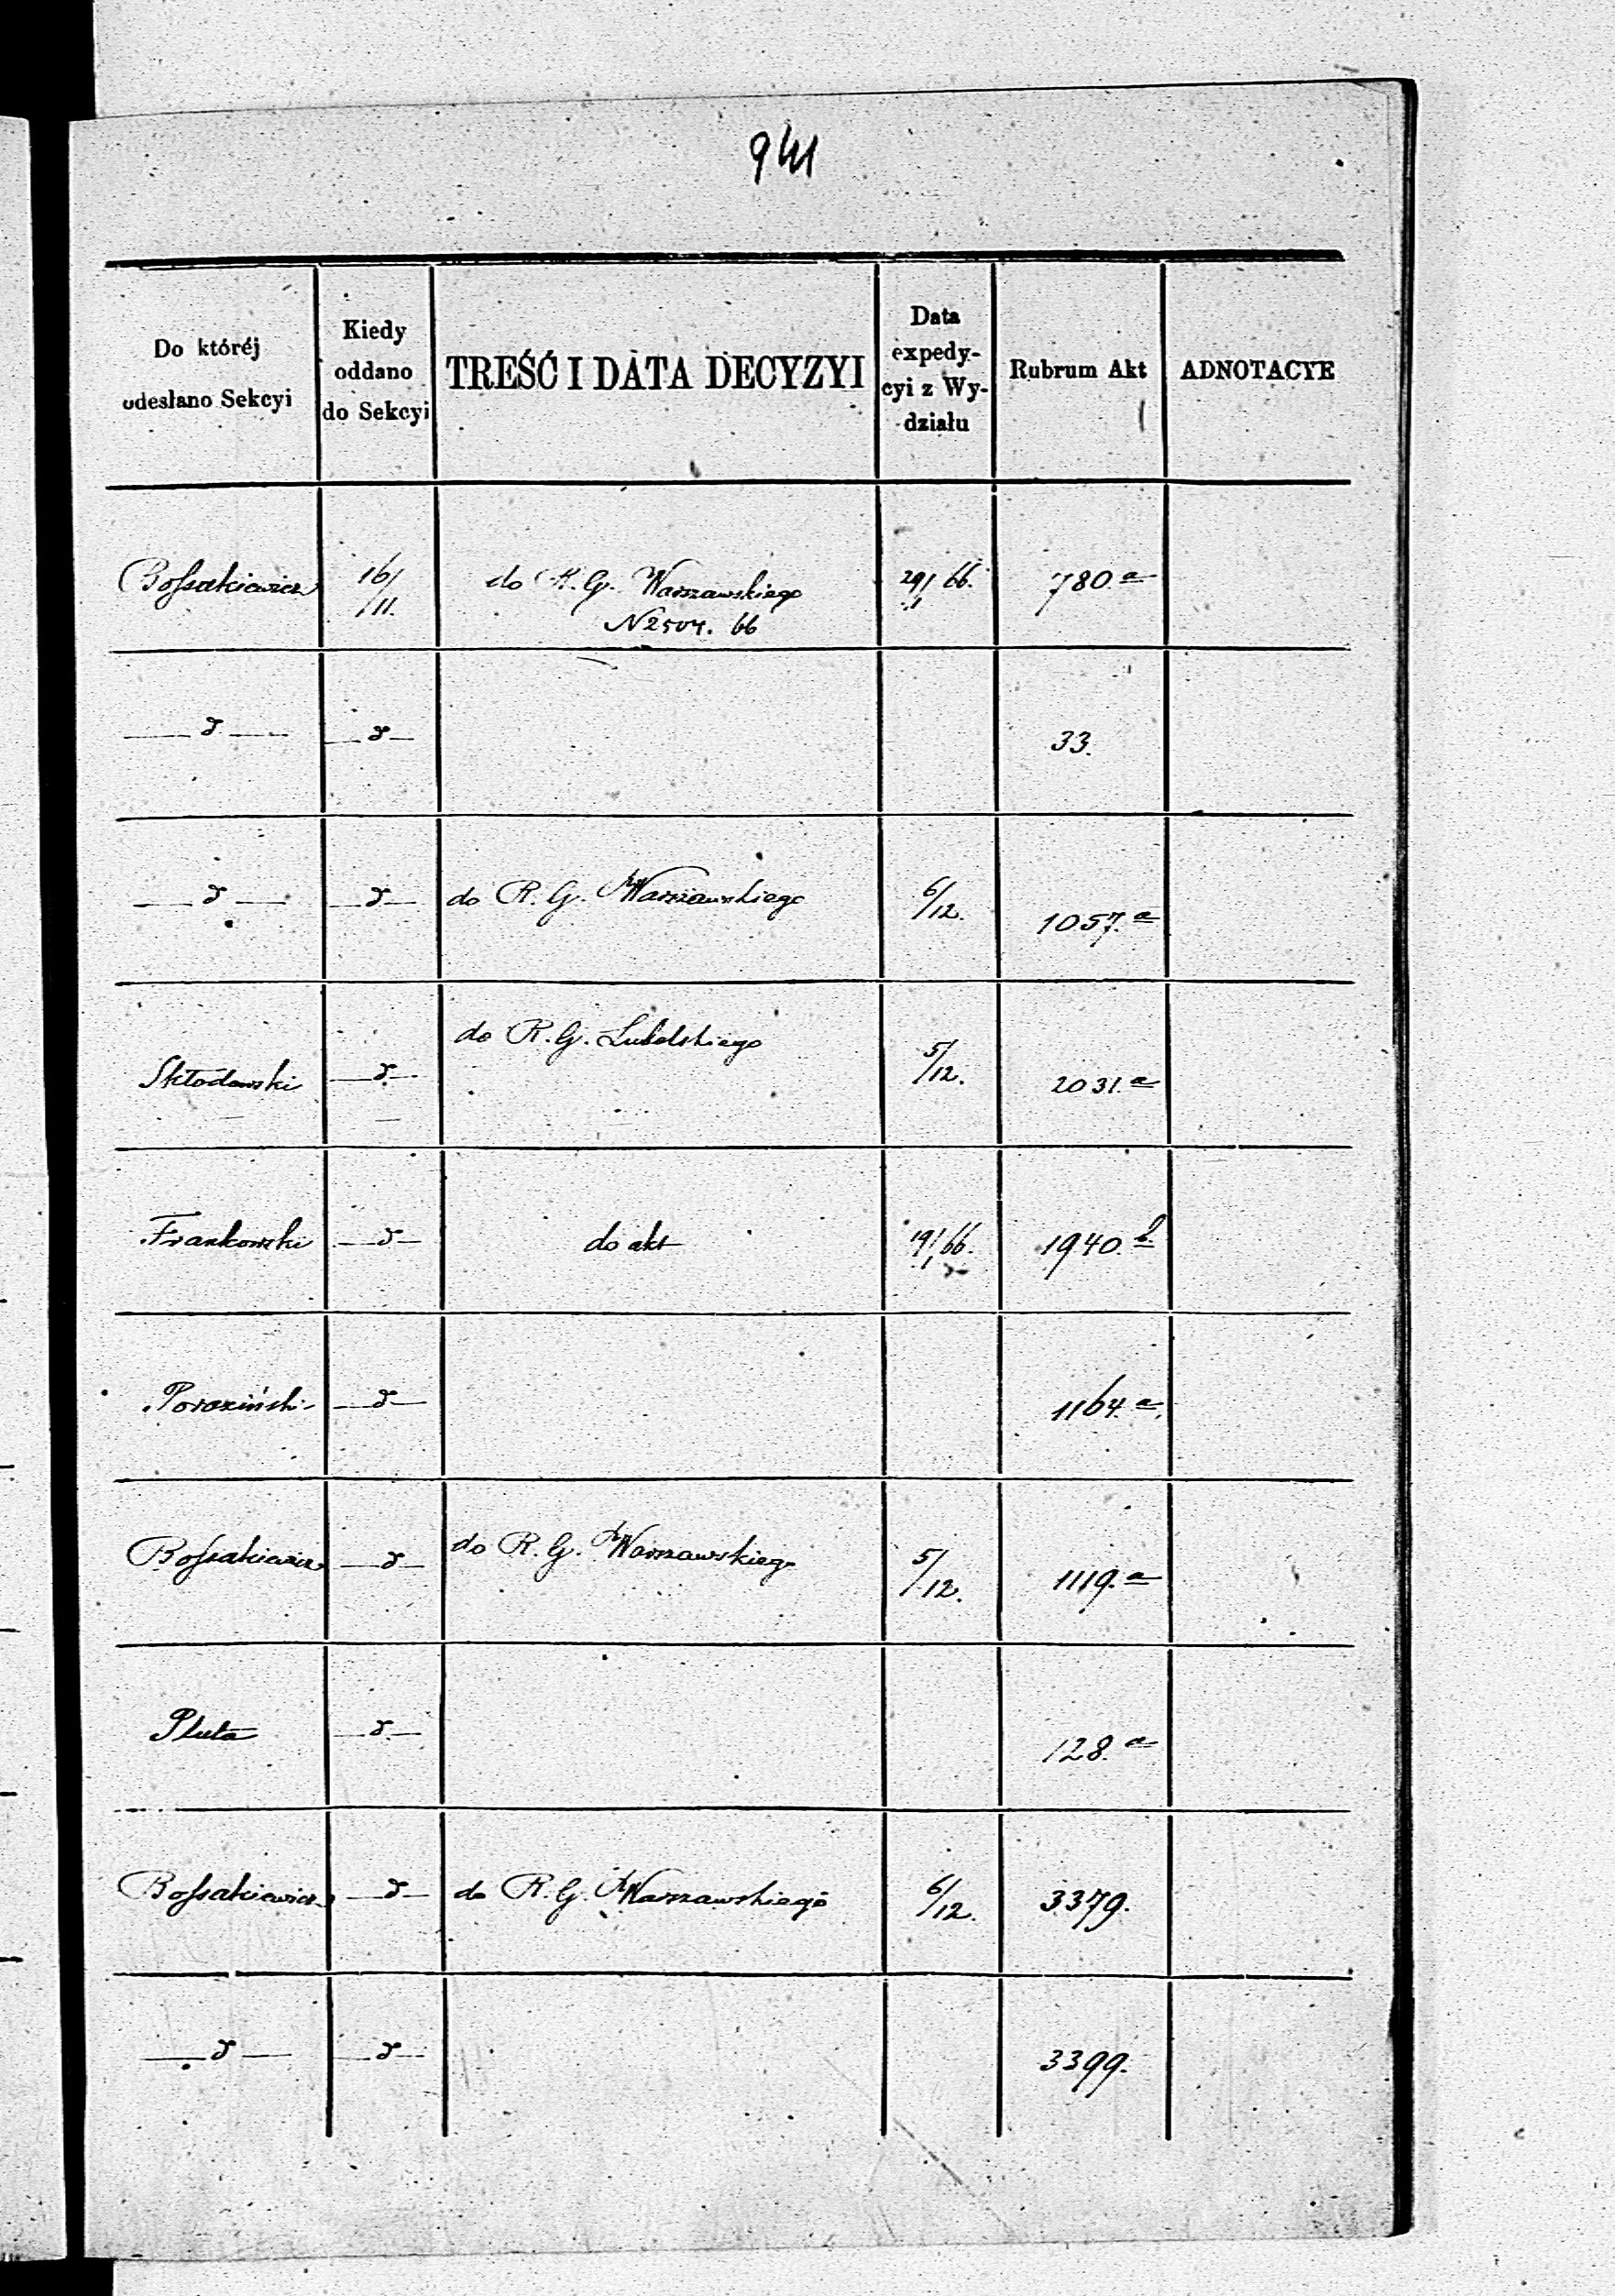 941
Do któréj odesłano Sekcyi
Kiedy oddano do Sekcyi
TREŚĆ I DATA DECYZYI
Data expedy-cyi z Wy-działu
Rubrum Akt
ADNOTACYE
Bossakiewicz 16/11. do R. G. Warszawskiego 29/1 66. 780.a
N 2504. 66
— d — — d — 33.
— d — — d — do R. G. Warszawskiego 6/12. 1057.a
Skłodowski — d — do R. G. Lubelskiego 5/12. 2031.a
Frankowski — d — do akt 19/1 66. 1940.b
Poroziński — d — 1164.a
Bossakiewicz — d — do R. G. Warszawskiego 5/12. 1119.a
Pluta — d — 128.a
Bossakiewicz — d — do R. G. Warszawskiego 6/12. 3379.
— d — — d — 3399.